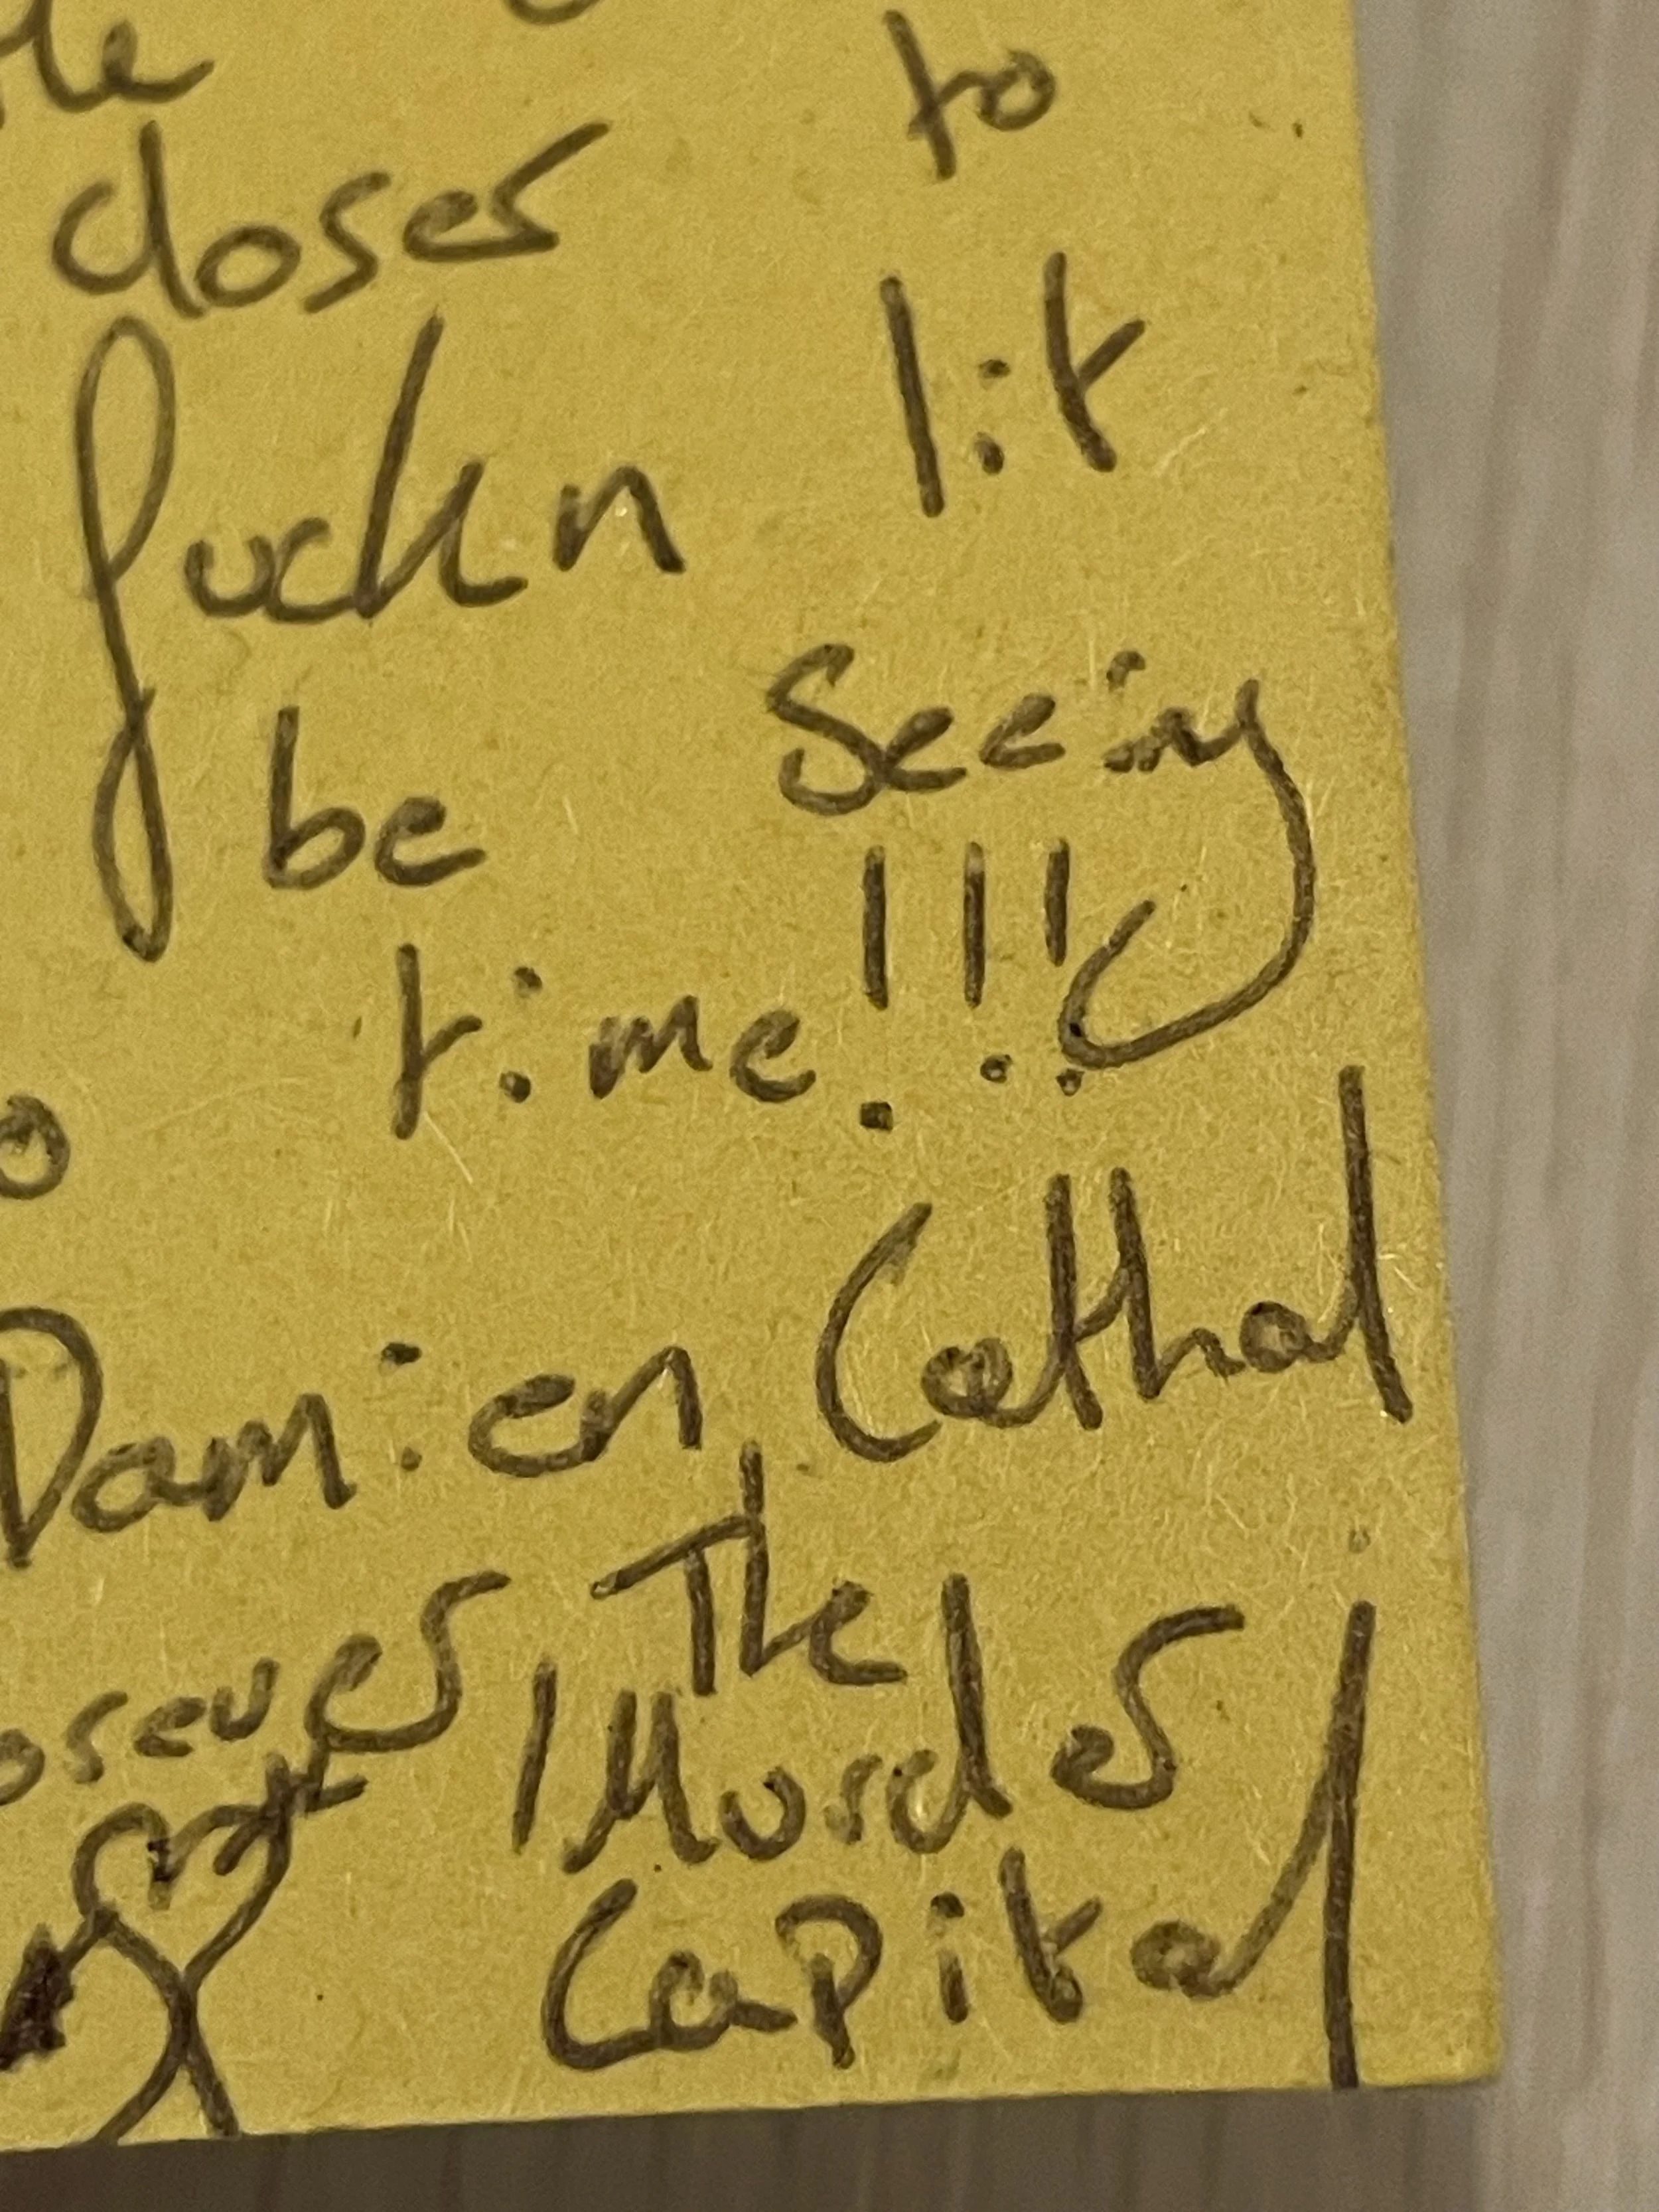 to
closer
fuckn lit
be seeing
time!!!
Damien, Cathal
The
Murder
Capital